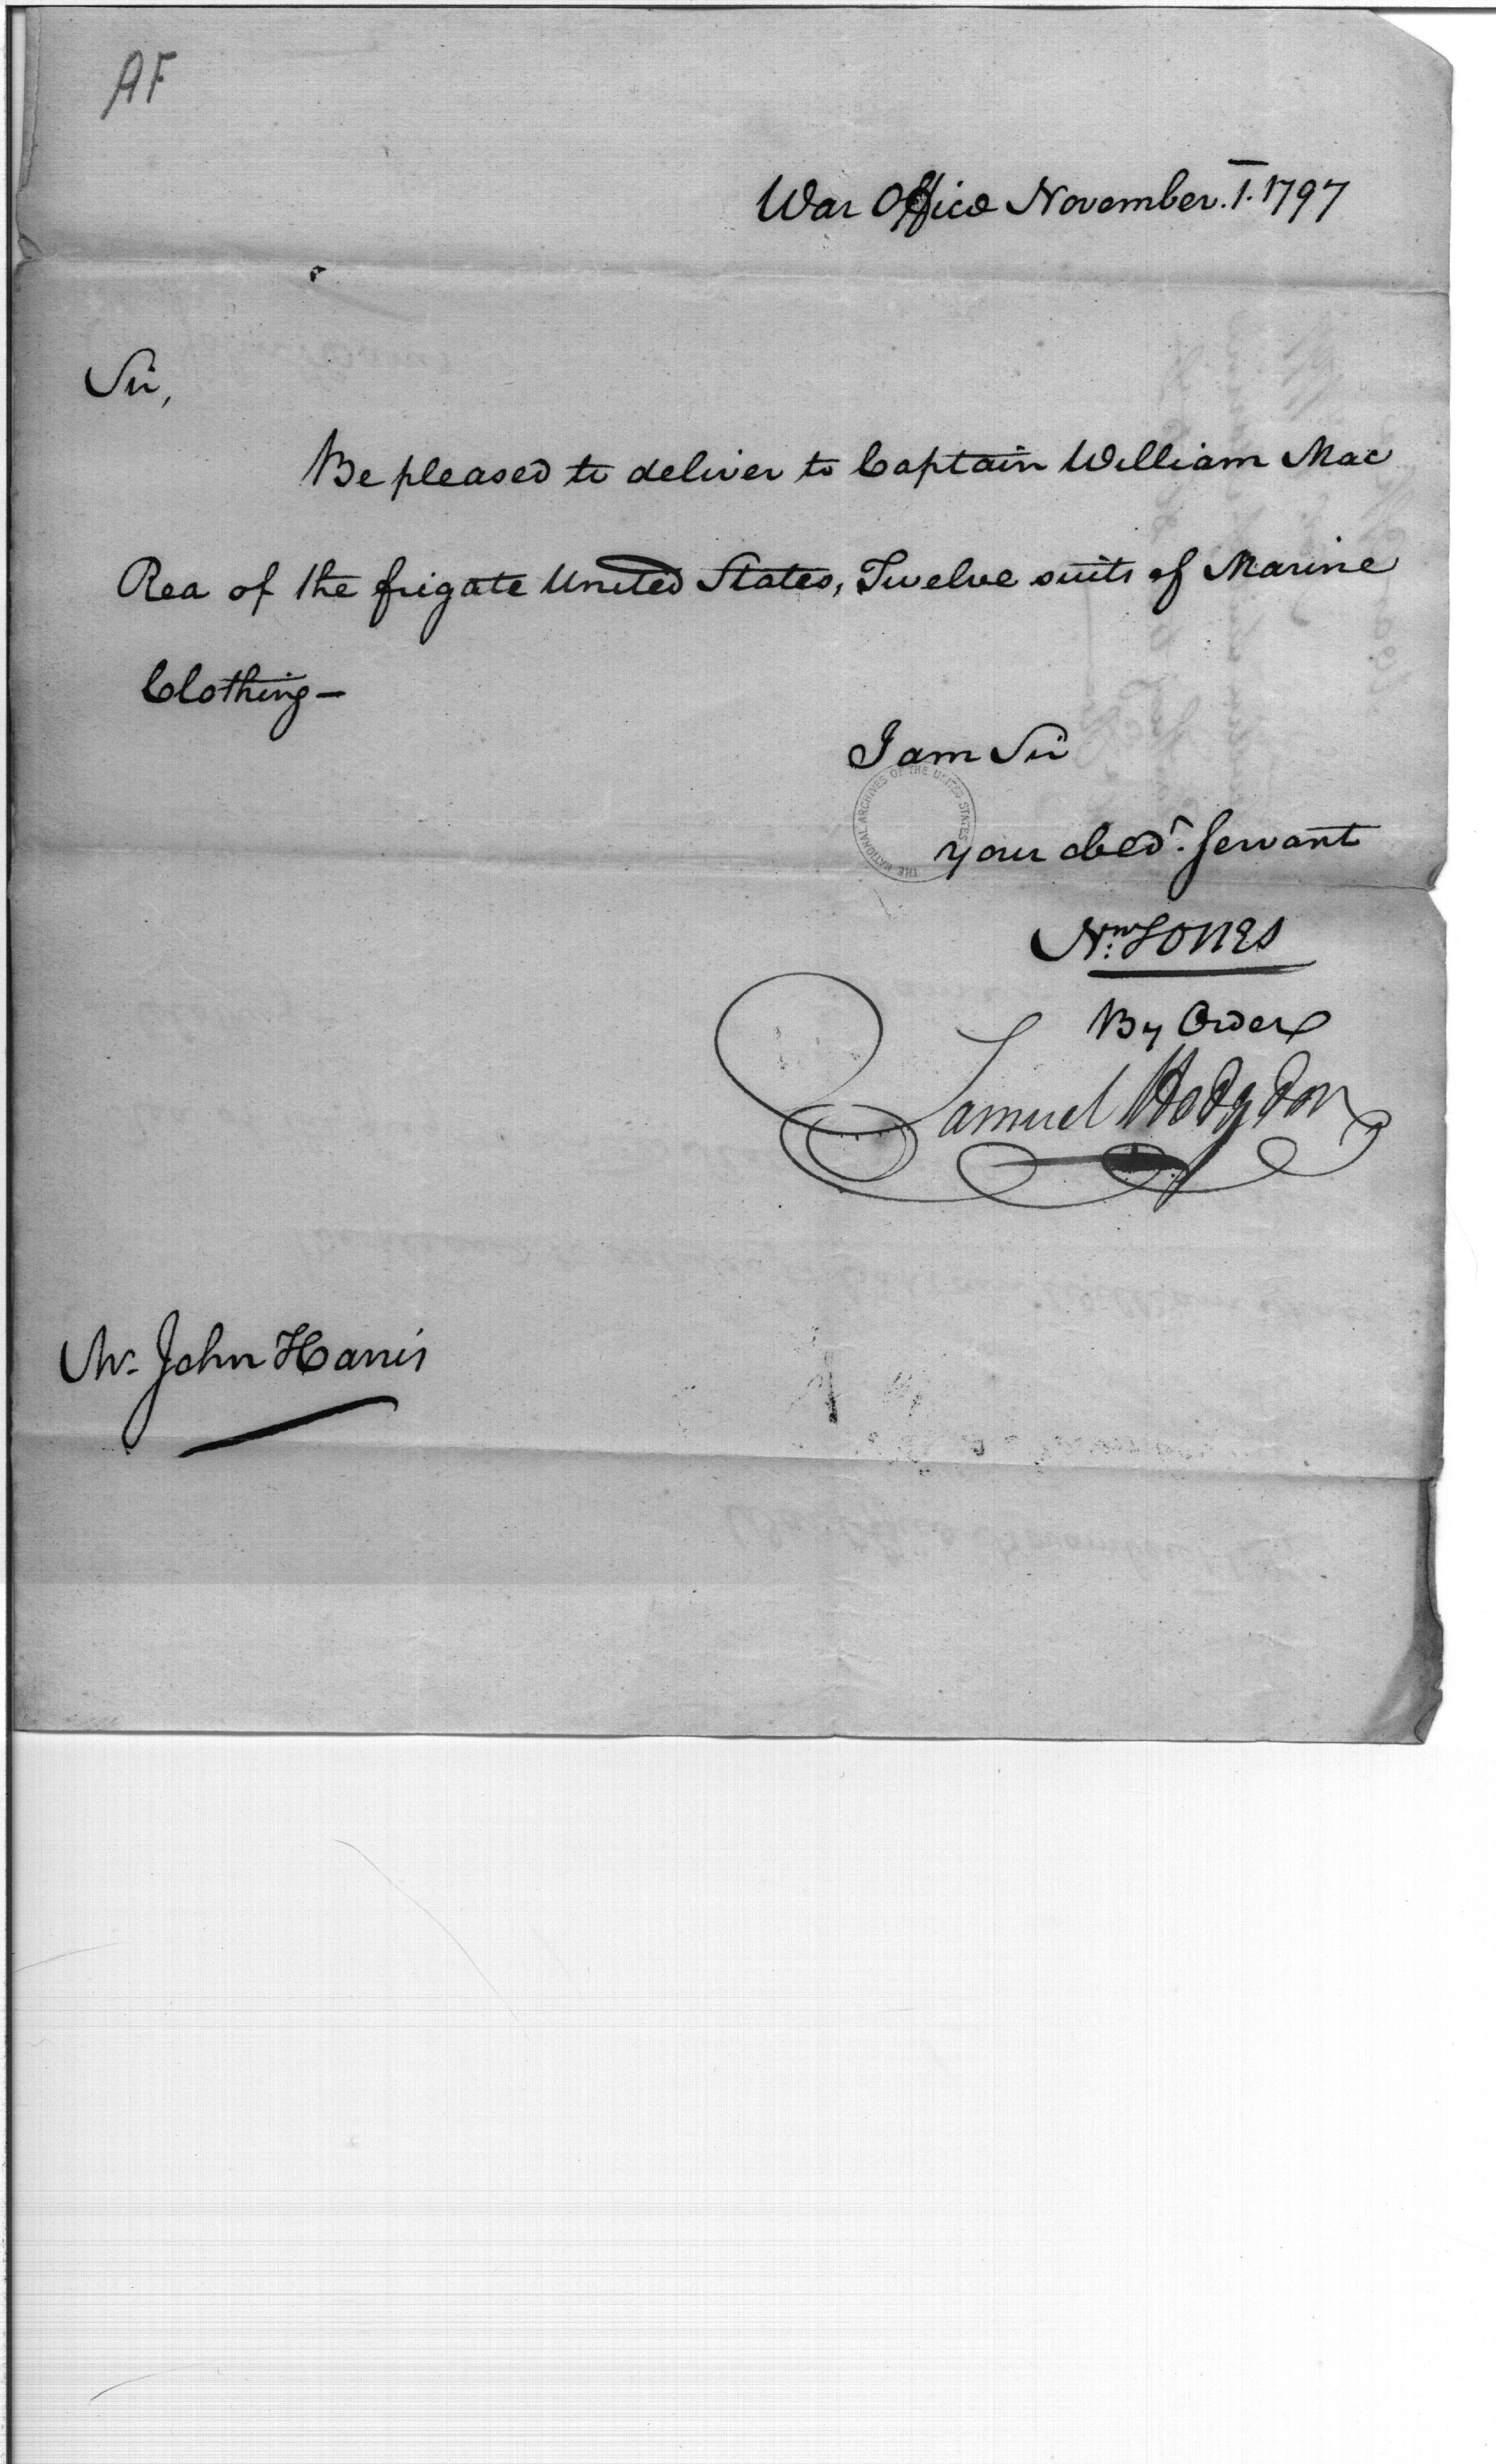 AF
War Office November. 1. 1797
Sir,
Be pleased to deliver to Captain William Mac
Rea of the frigate United States, Twelve suits of Marine
Clothing—
I am Sir
THE NATIONAL ARCHIVES OF THE UNITED STATES
your obedt. servant
Nm Jones
By Order
Samuel Hodgdon
Mr. John Harris